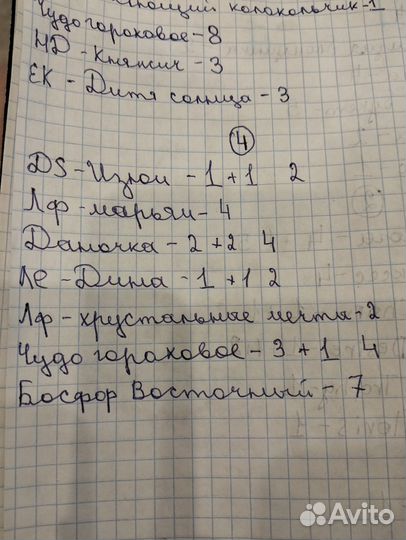 колокольчик-1
Чудо гороховое-8
ИД-Княжич-3
ЕК-Дитя солнца-3
4
DS-Изгои-1+1 2
Лф-марьяж-4
Даночка-2+2 4
ЛЕ-Дина-1+1 2
Лф-хрустальные мечты-2
Чудо гороховое-3+1 4
Босфор Восточный-7
Avito